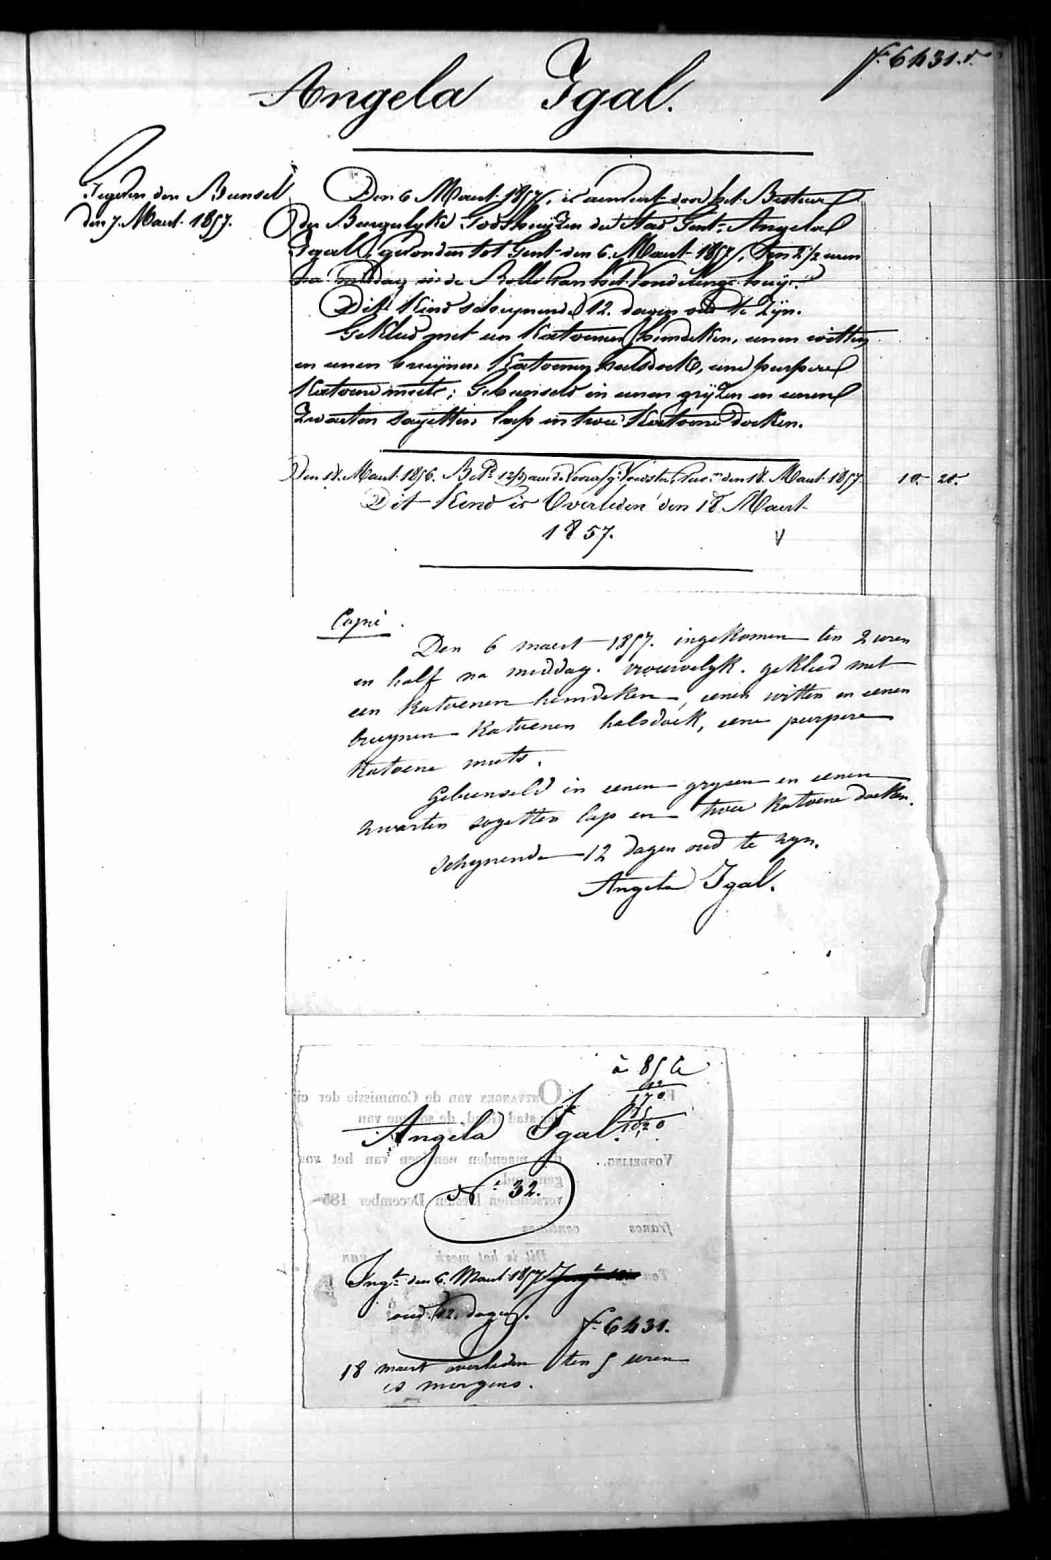 f.° 6431. r.°
Angela Igal.
Tegelen den Bunsel
den 7. Maart 1857.
Den 6 Maart 1857, is aenveert door het Bestuur
der Burgerlyke Godshuyzen der Stad Gent. Angela
Igal, gevonden tot Gent den 6. Maart 1857, ten 2 1/2 uren
na middag in de Rolle van het Vondelinge huys.
Dit Kind schynende 12. dagen oud te Zyn.
Gekleed met een Katoenen hemdeken, eenen witten
en eenen bruynen Katoenen halsdoek, eene purpere
Katoene muts; Gebunseld in eenen gryzen en eenen
Zwarten sayetten lap en twee Katoene doeken.
Den 18. Maart 1856. den 18. Maart 1857 10.- 20.-
Dit Kind is Overleden den 18 Maart
1857.
Copie.
Den 6 maert 1857. ingekomen ten 2 uren
en half na middag. vrouwelyk. gekleed met
een katoenen hemdeken, eenen witten en eenen
bruynen katoenen halsdoek, eene purpere
katoene muts.
Gebunseld in eenen grysen en eenen
zwarten sayetten lap en twee katoene doeken.
Schynende 12 dagen oud te zyn.
Angela Igal.
à 85 c
12
170
85
1020
Angela Igal.
N.° 32.
Ing.n den 6. Maart 1857
oud 12. dagen.
f.° 6431.
18 maert overleden ten 5 uren
's morgens.